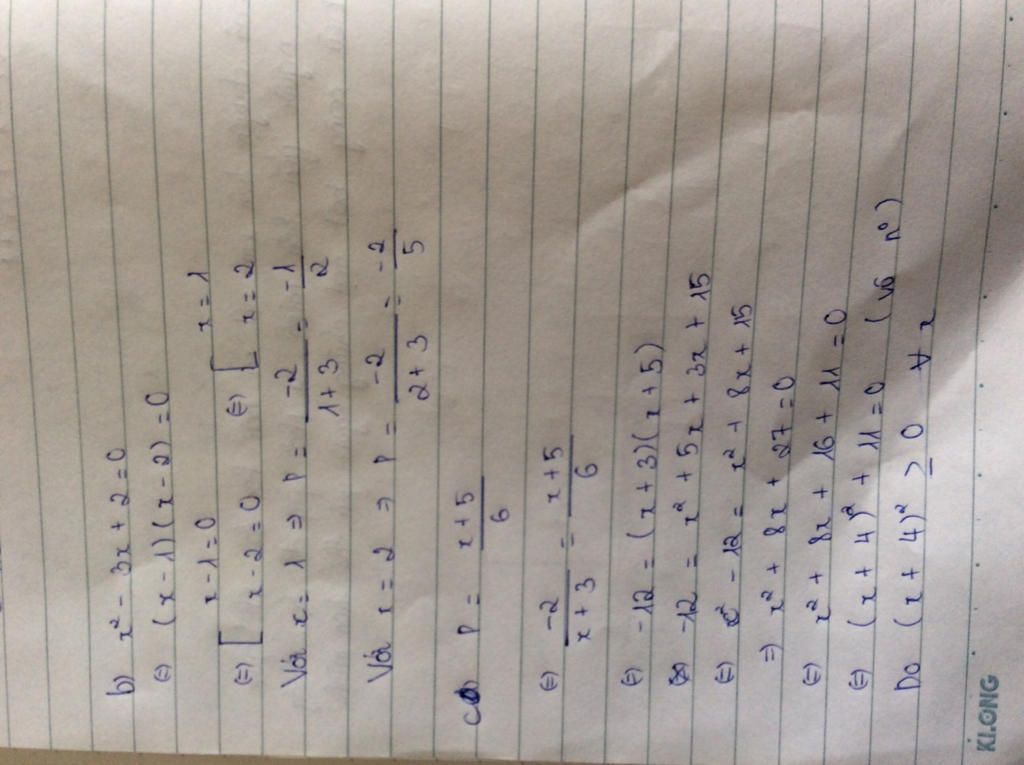 b) x² - 3x + 2 = 0
(=) (x - 1)(x - 2) = 0
(=) [ x - 1 = 0 (=) [ x = 1
x - 2 = 0 x = 2
Với x = 1 => P = -2/(1+3) = -1/2
Với x = 2 => P = -2/(2+3) = -2/5
c) P = (x+5)/6
(=) -2/(x+3) = (x+5)/6
(=) -12 = (x+3)(x+5)
(=) -12 = x² + 5x + 3x + 15
(=) -12 = x² + 8x + 15
=) x² + 8x + 27 = 0
(=) x² + 8x + 16 + 11 = 0
(=) (x + 4)² + 11 = 0 (vô n°)
Do (x + 4)² ≥ 0 ∀ x
KLONG